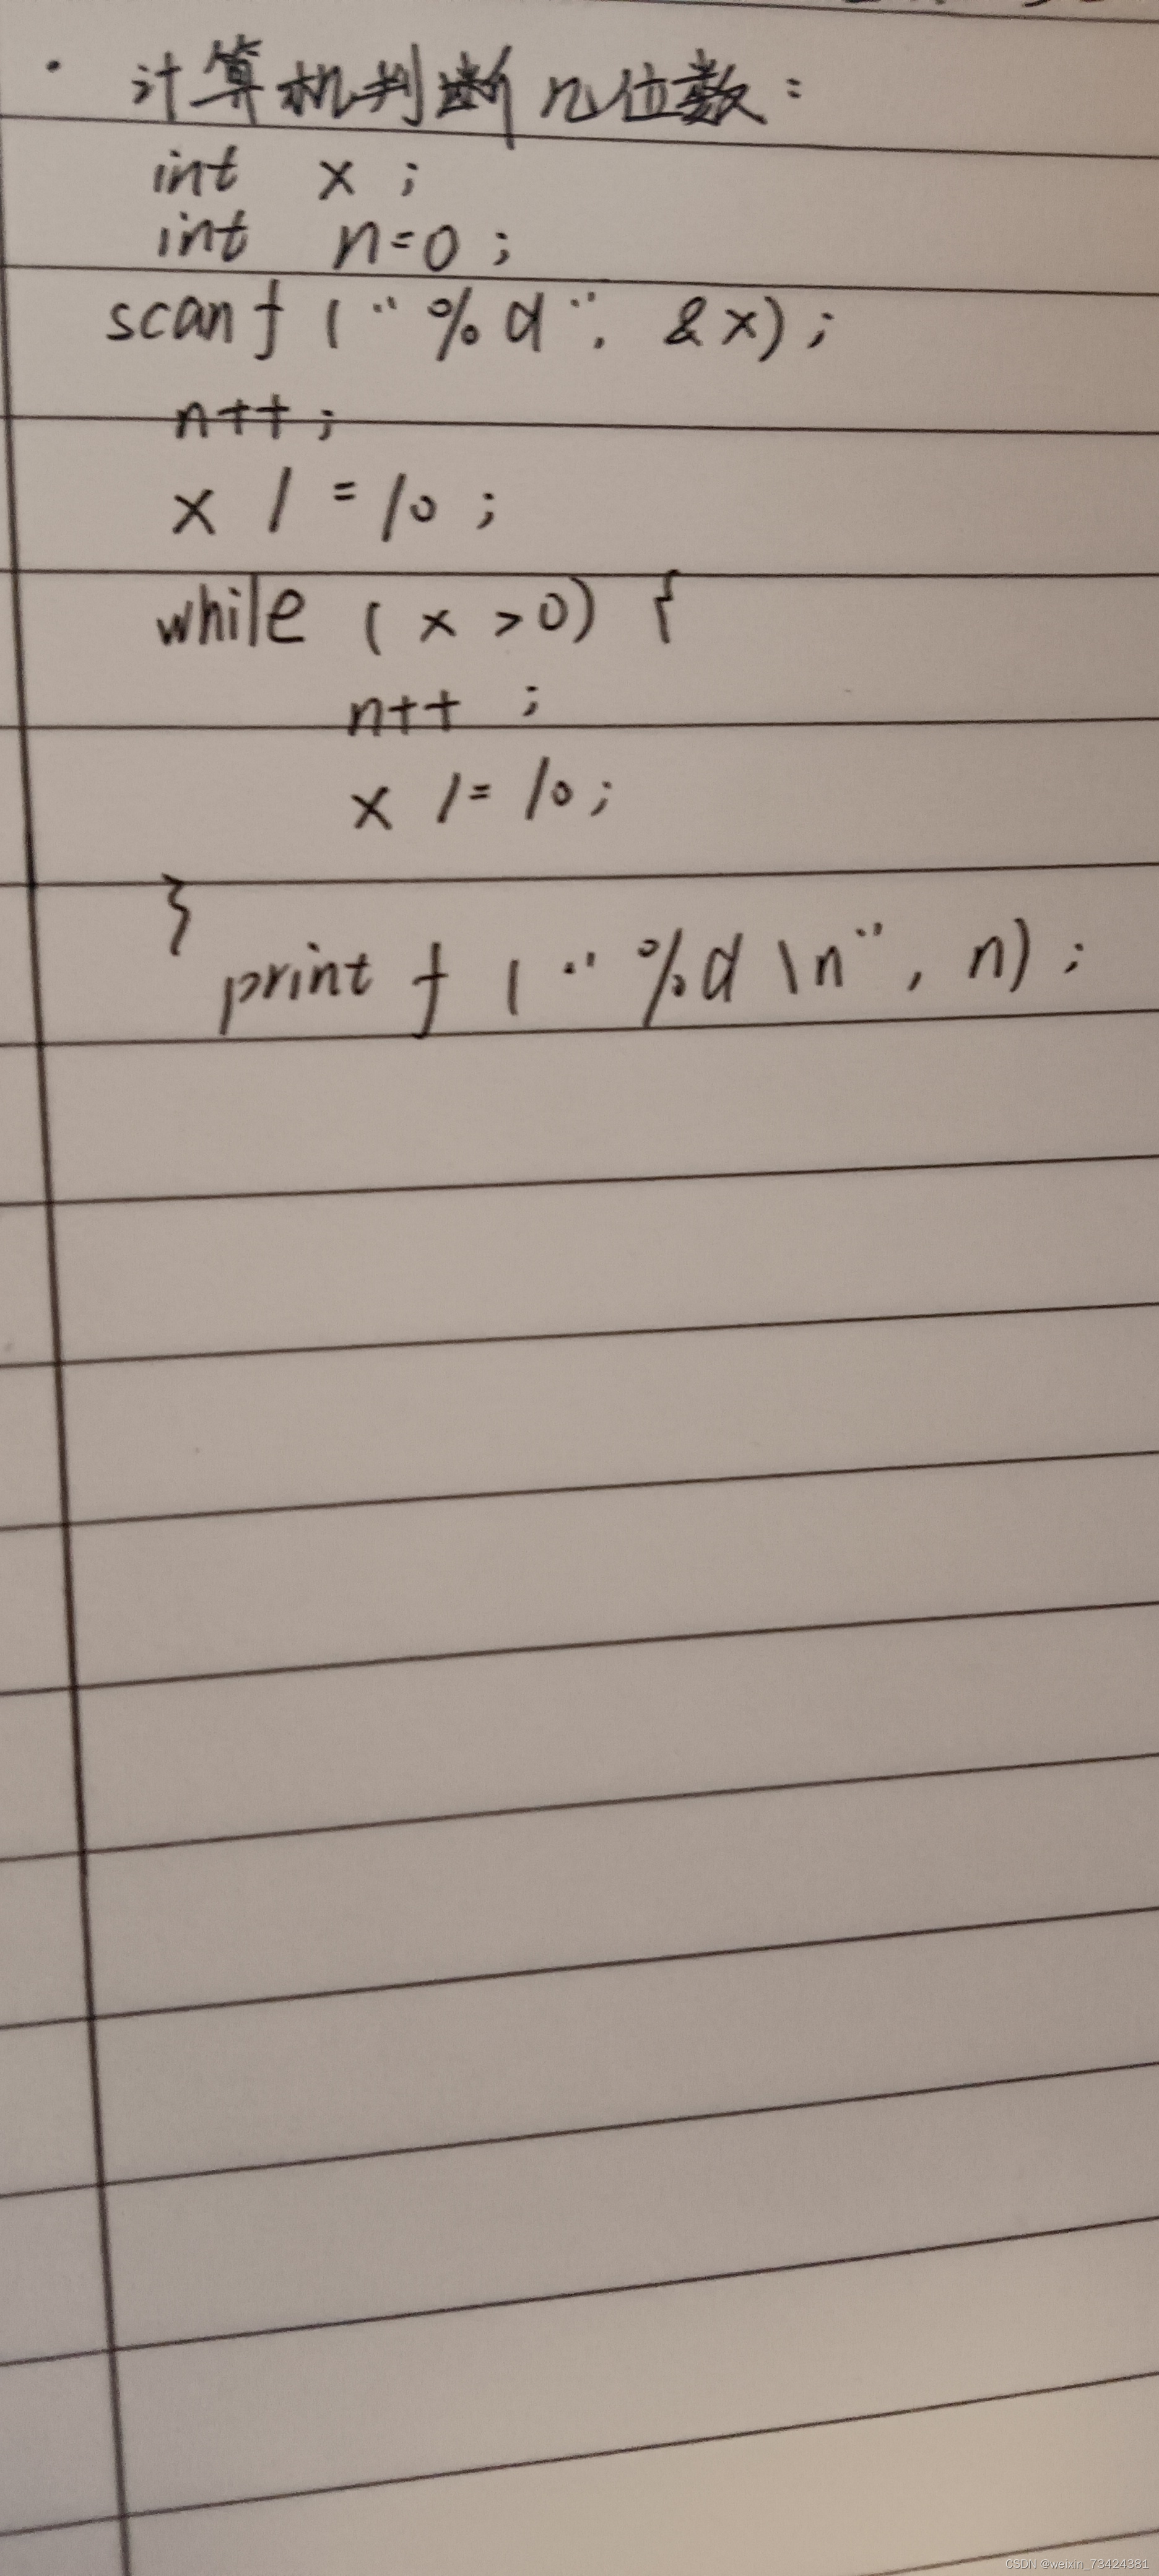 · 计算机判断几位数:
int x ;
int n=0 ;
scanf ("%d", &x) ;
n++ ;
x /=10 ;
while ( x >0) {
n++ ;
x /= 10 ;
}
printf ("%d \n", n) ;
CSDN @weixin_73424381